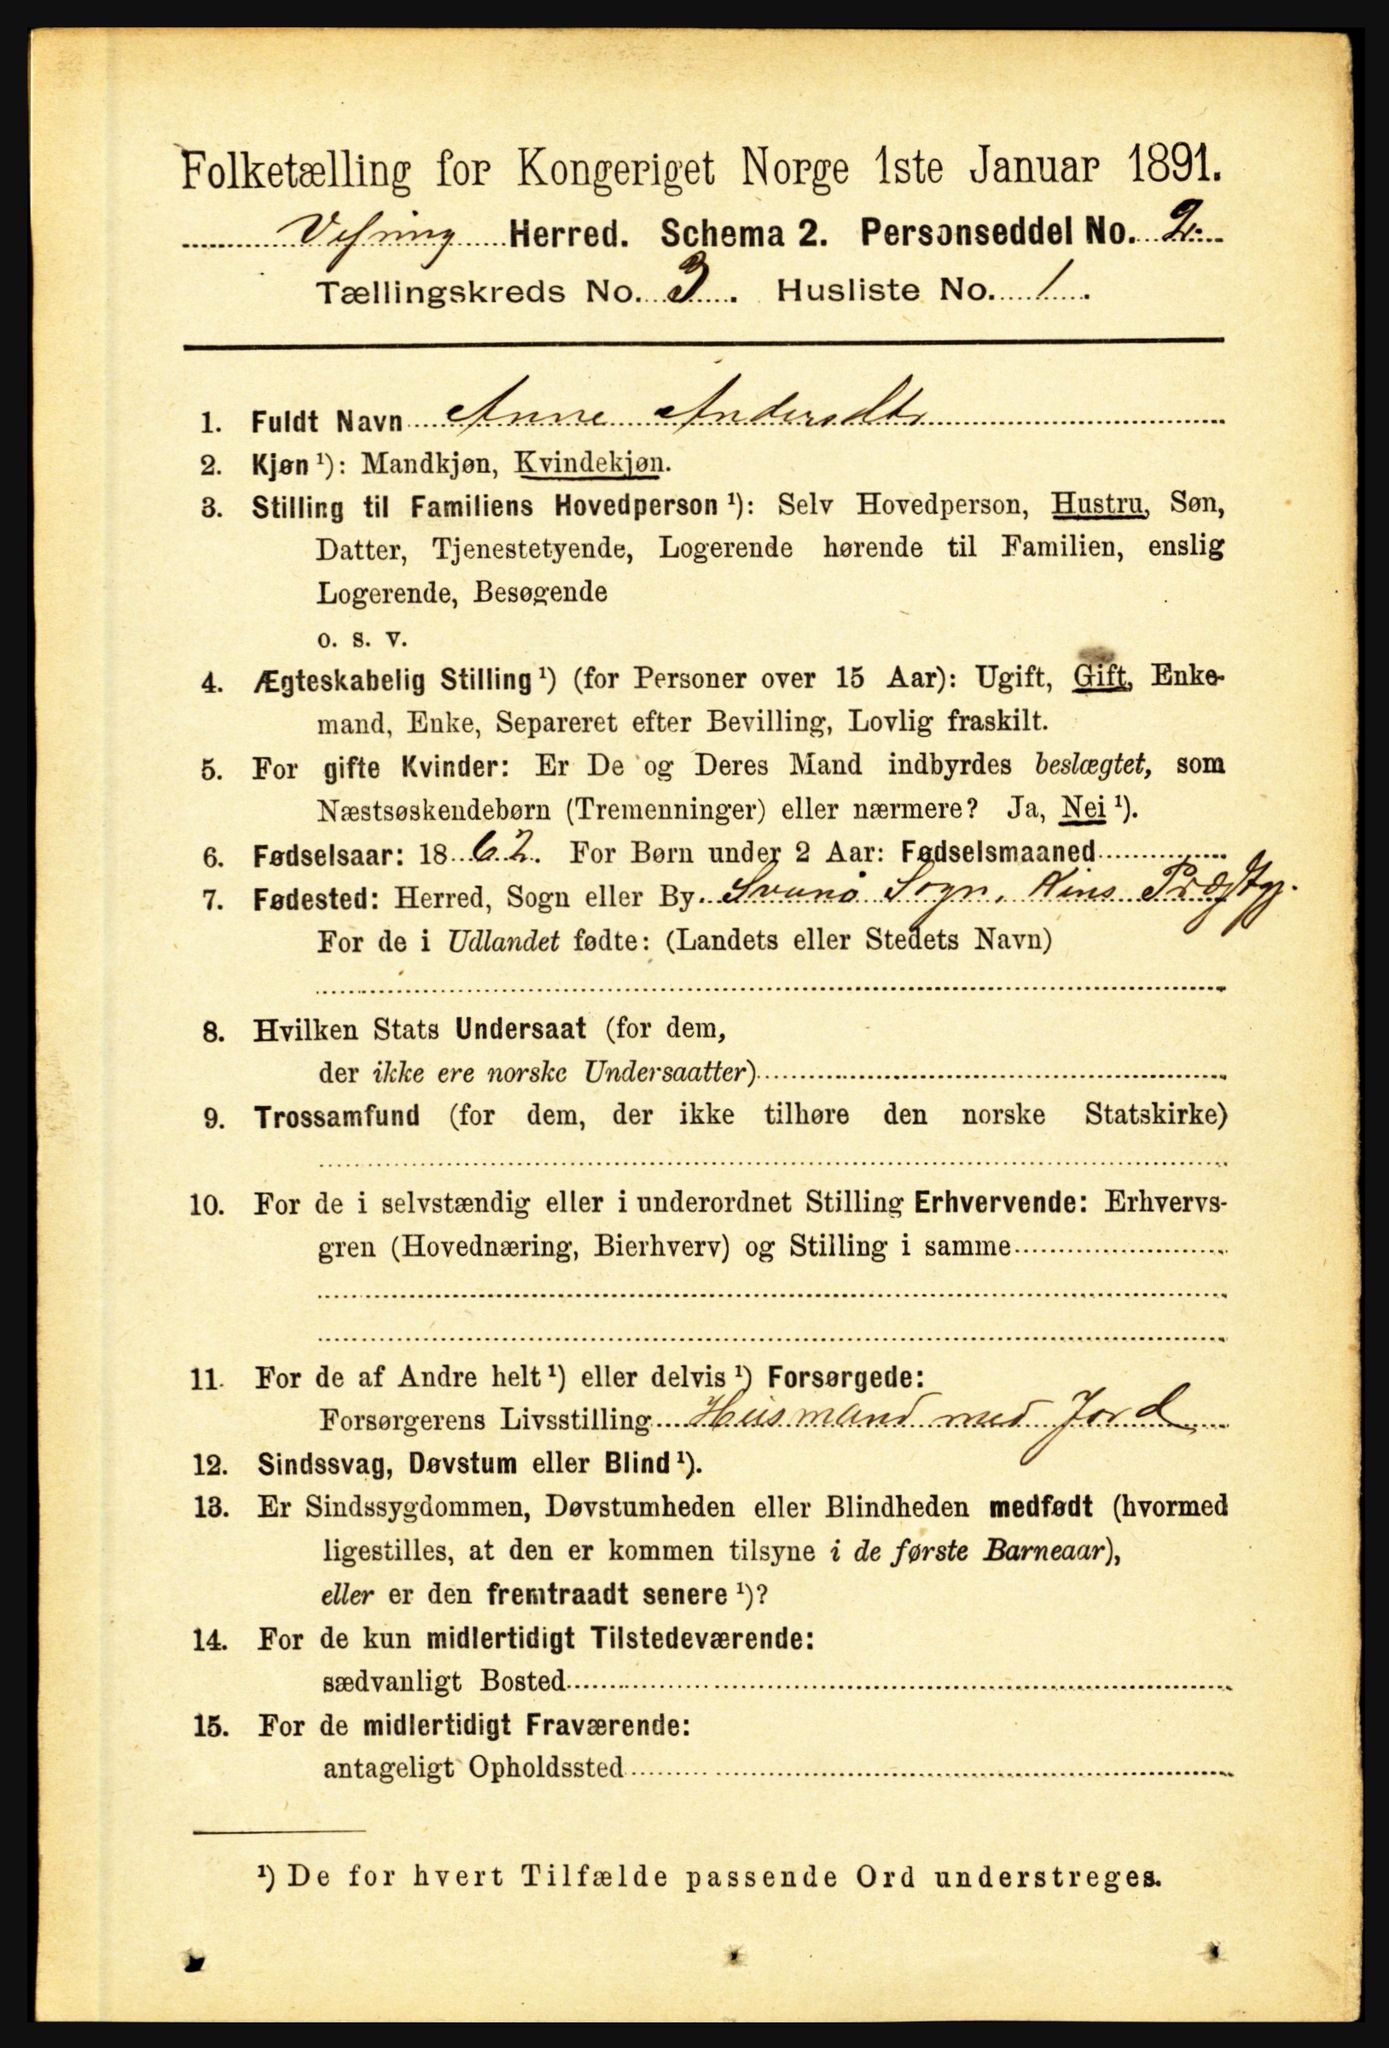 Folketælling for Kongeriget Norge 1ste Januar 1891.
Vefring Herred. Schema 2. Personseddel No. 2.
Tællingskreds No. 3. Husliste No. 1.
1. Fuldt Navn Anne Andersdtr
2. Kjøn ¹): Mandkjøn, Kvindekjøn.
3. Stilling til Familiens Hovedperson ¹): Selv Hovedperson, Hustru, Søn,
Datter, Tjenestetyende, Logerende hørende til Familien, enslig
Logerende, Besøgende
o. s. v.
4. Ægteskabelig Stilling ¹) (for Personer over 15 Aar): Ugift, Gift, Enke-
mand, Enke, Separeret efter Bevilling, Lovlig fraskilt.
5. For gifte Kvinder: Er De og Deres Mand indbyrdes beslægtet, som
Næstsøskendebørn (Tremenninger) eller nærmere? Ja, Nei ¹).
6. Fødselsaar: 1862. For Børn under 2 Aar: Fødselsmaaned
7. Fødested: Herred, Sogn eller By Svanø Sogn, Kins Præstgj.
For de i Udlandet fødte: (Landets eller Stedets Navn)
8. Hvilken Stats Undersaat (for dem,
der ikke ere norske Undersaatter)
9. Trossamfund (for dem, der ikke tilhøre den norske Statskirke)
10. For de i selvstændig eller i underordnet Stilling Erhvervende: Erhvervs-
gren (Hovednæring, Bierhverv) og Stilling i samme
11. For de af Andre helt ¹) eller delvis ¹) Forsørgede:
Forsørgerens Livsstilling Husmand med Jord
12. Sindssvag, Døvstum eller Blind ¹).
13. Er Sindssygdommen, Døvstumheden eller Blindheden medfødt (hvormed
ligestilles, at den er kommen tilsyne i de første Barneaar),
eller er den fremtraadt senere ¹)?
14. For de kun midlertidigt Tilstedeværende:
sædvanligt Bosted
15. For de midlertidigt Fraværende:
antageligt Opholdssted
¹) De for hvert Tilfælde passende Ord understreges.